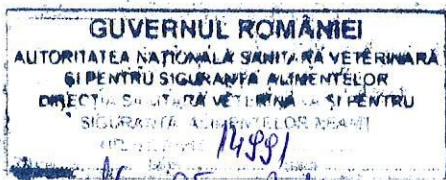 GUVERNUL ROMÂNIEI
AUTORITATEA NAȚIONALĂ SANITARĂ VETERINARĂ
ȘI PENTRU SIGURANȚA ALIMENTELOR
DIRECȚIA SANITARĂ VETERINARĂ ȘI PENTRU
SIGURANȚA ALIMENTELOR NEAMȚ
14991